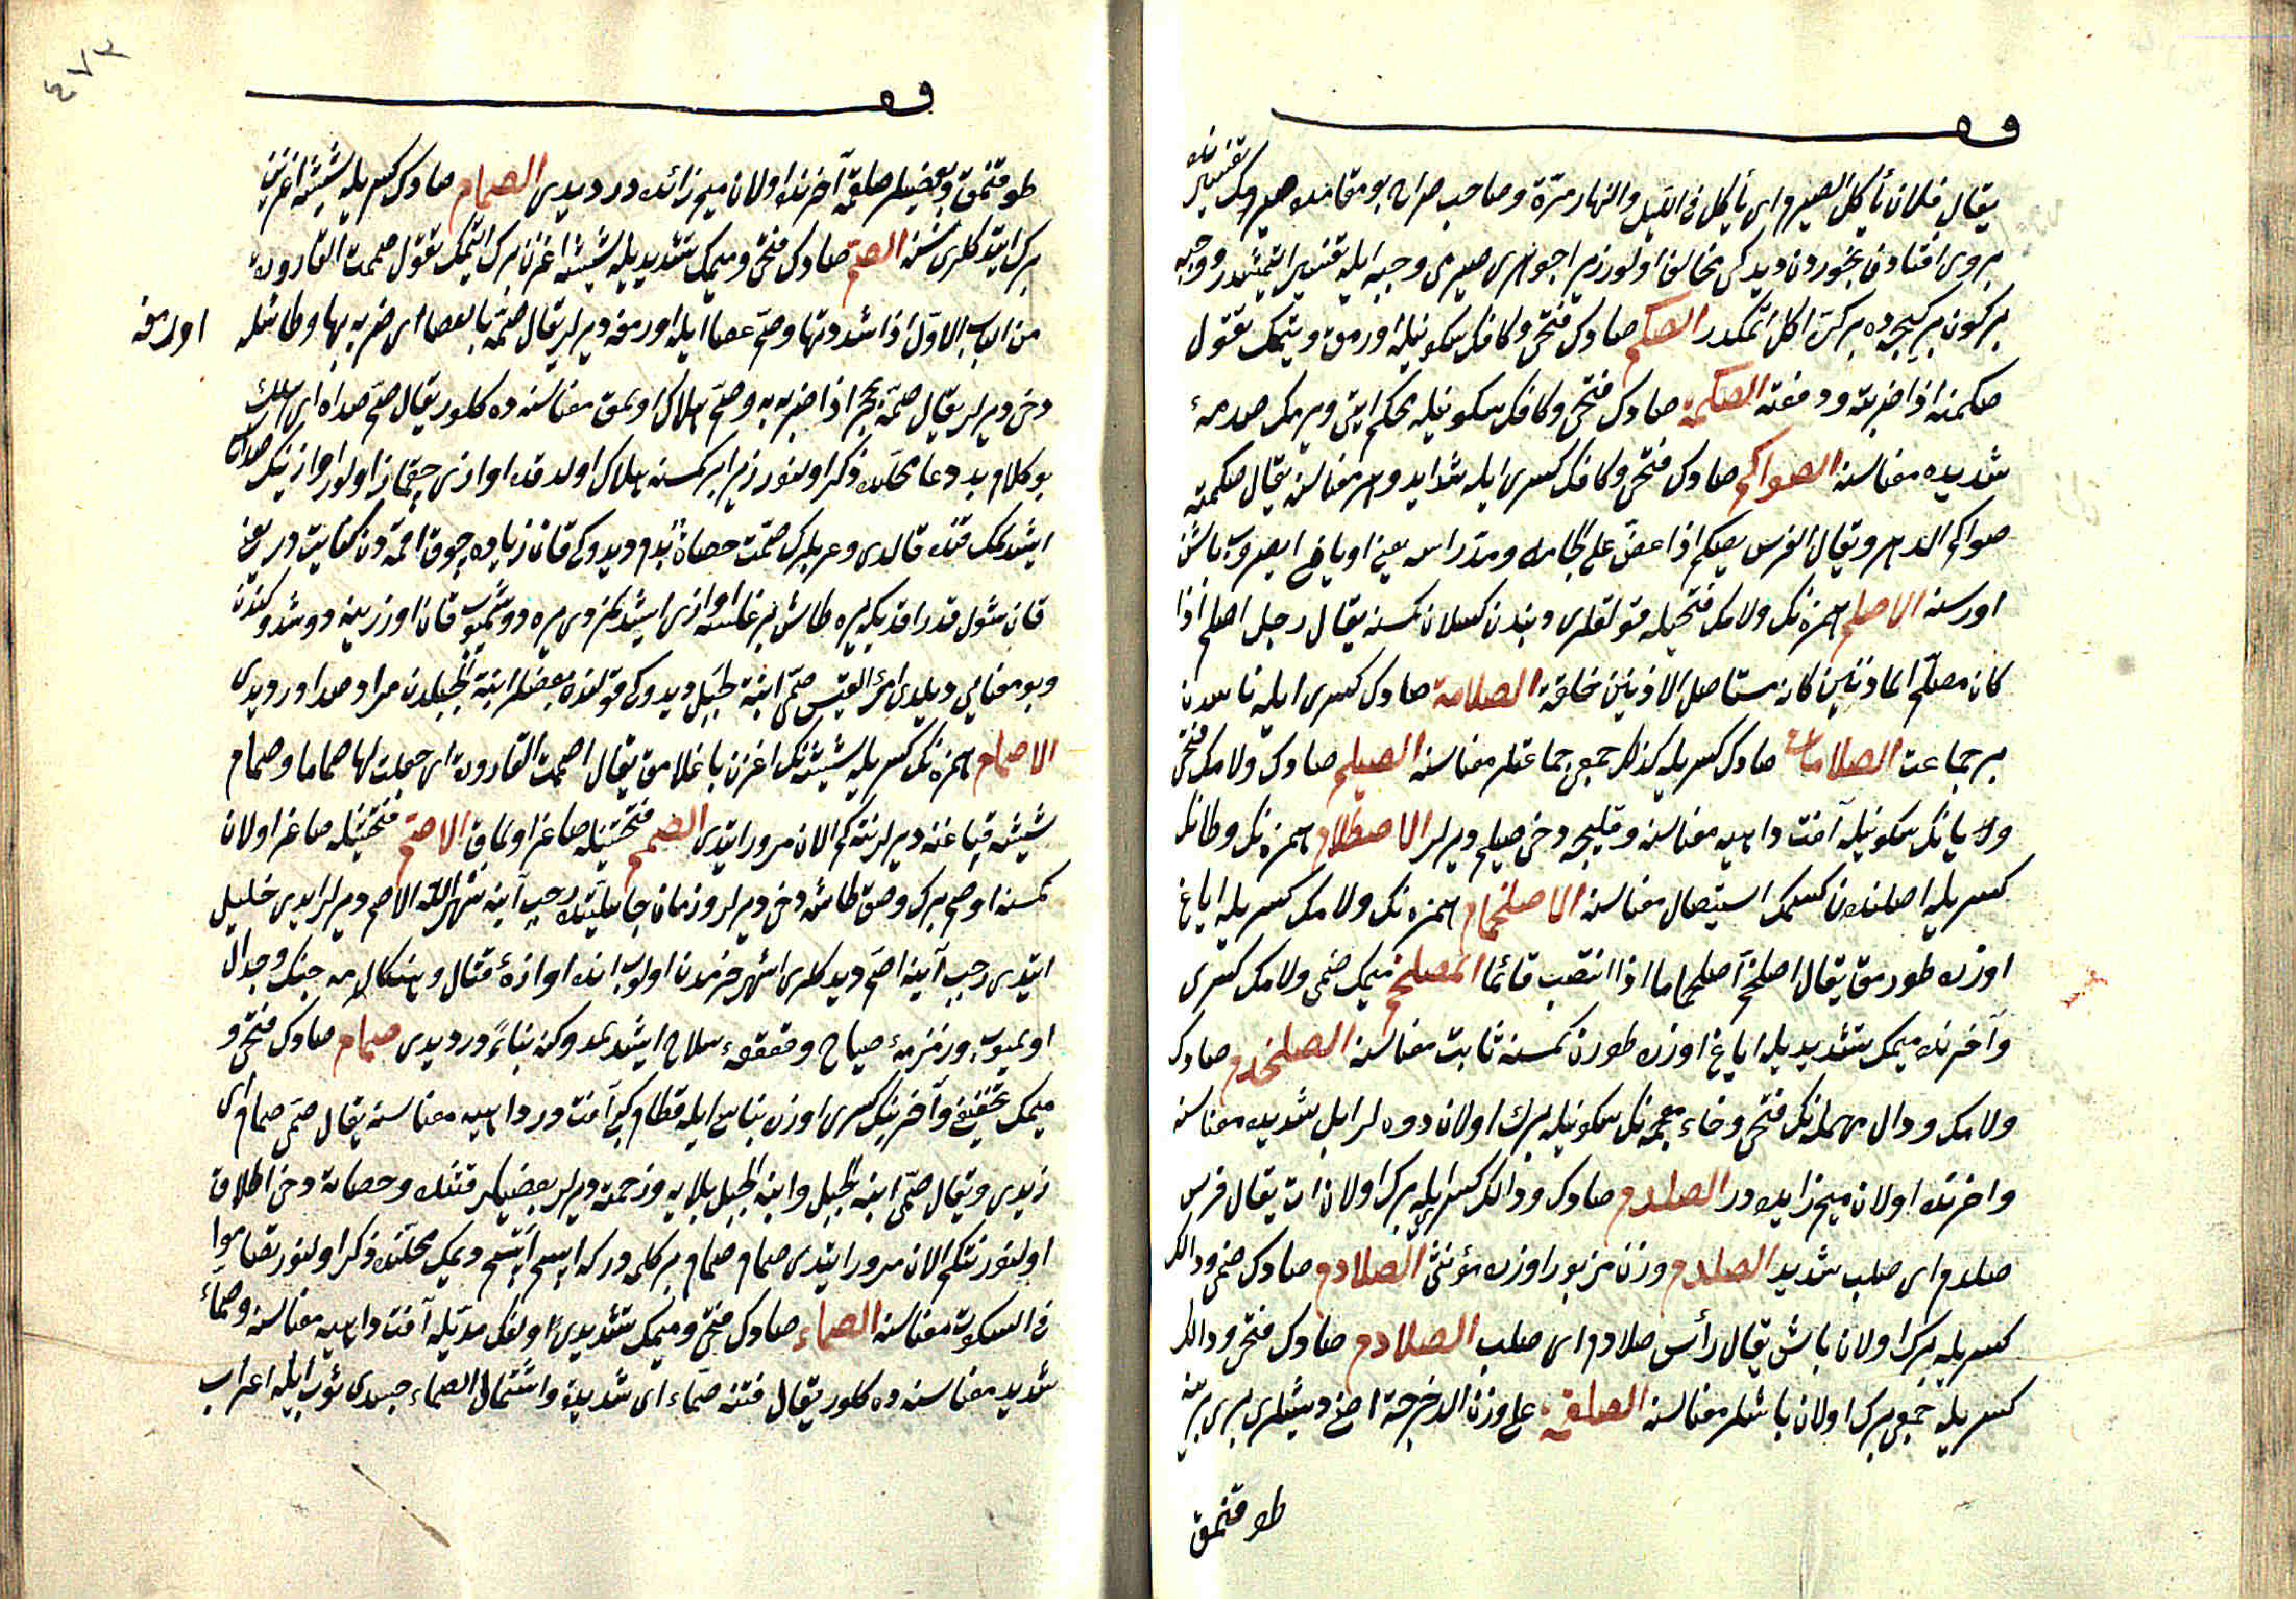 يقال فلان يأكل الصيرم اى يأكل فى الليل والنهار مرّة وصاحب صراح بو مقامده صيرمك تفسيرنده
بر كون بر كيجه ده بر كرّه اكل اتمكدر الصكم صادك فتحى وكافك سكونيله اورمق ويتمك تقول
صكمته اذا ضربته ودفعته الصكمة صادك فتحى وكافك سكونيله محكم ايتى ويرمك صدمۀ
شديده معناسنه الصواكم صادك فتحى وكافك كسرى ايله شدايد دهر معناسنه يقال صكمته
صواكم الدهر ويقال الفرس يصكم اذا عض على لجامه ومدّ راسه يعنى
اورسه الاصلم همزه نك ولامك فتحيله قولقلرى ديبندن كسلان كمسنه يقال رجل اصلم اذا
كان مصلّم الاذنين كانه مستأصل الاذنين خلقة الصلامة صادك كسرى ايله ناسدن
بر جماعت الصلامات صادك كسريله كذلك جمعى جماعتلر معناسنه الصيلم صادك ولامك فتحى
ويانك سكونيله آفت داهيه معناسنه وقليجه دخى صيلم ديرلر الاصطلام همزه نك وطانك
كسريله اصلندن كسمك استيصال معناسنه الاصلخمام همزه نك ولامك كسريله اياغ
اوزره طورمق يقال اصلخمّ اصلخماما اذا انتصب قائما المصلخم ميمك ضمى ولامك كسرى
وآخرنده ميمك تشديديله اياغ اوزره طوران كمسنه ثابت معناسنه الصلخدم صادك
ولامك ودال مهمله نك فتحى وخاء معجمه نك سكونيله برك اولان دوه لر ابل شديده معناسنه
واخرنده اولان ميم زايده در الصلدم صادك ودالك كسرلريله برك اولان ات يقال فرس
صلدم اى صلب شديد الصلدم وزن مزبور اوزره مؤنثى الصلادم صادك ضمى ودالك
كسريله برك اولان باش يقال رأس صلادم اى صلب الصلادم صادك فتحى ودالك
كسريله جمعى برك اولان باشلر معناسنه الصلقمة على وزن الدحرجة اضى ديشلرى برى برينه
طوقنمق
طوقنمق وبعضيلر صلقمه آخرنده اولان ميم زائده در ديدى الصمام صادك كسريله شيشه اغزين
برك ايتدكلرى نسنه الصم صادك فتحى وميمك تشديديله شيشه اغزن برك ايتمك تقول صممت القارورة
من الباب الاول اذا شددتها وصم عصا ايله اورمغه ديرلر يقال صمّه بالعصا اى ضربه بها وطاشله
اورمغه
دخى ديرلر يقال صمّه بحجر اذا ضربه به وصم هلاك اولمق معناسنه ده كلور يقال صمّ صداه اى هلك
بو كلام بد دعا محلنده ذكر اولنور زيرا بر كمسنه هلاك اولدقده اوازى چيقماز اولور اوازينك صداسى
ايشدلمك قنده قالدى وعربلرك صمّت حصاة بدم ديدوكى قان زياده چوق اقمه دن كنايت در يعنى
قان شول قدر اقدى كه يره طاش براغلسه اوازى ايشدلمزدى يره دوشميوب قان اوزرينه دوشدوكندن
وبو معنايى ديلدى امرؤ القيس صمّى ابنة الجبل ديدوكى قولنده بعضلر ابنة الجبلدن مراد صدا در ديدى
الاصمام همزه نك كسريله شيشه نك اغزن باغلامق يقال اصممت القارورة اى جعلت لها صماما وصمام
شيشه قپاغنه ديرلر نتكم الان مرور ايتدى الصمم فتحتيله صاغر اولماق الاصم فتحتيله صاغر اولان
كمسنه اوصم برك وصق طاشه دخى ديرلر وزمان جاهليتده رجب آينه شهر الله الاصم ديرلر ايدى خليل
ايتدى رجب آينه اصم ديدكلرى اشهر حرمدن اولوب انده اوازۀ قتال وهنكامۀ جنك وجدال
اولميوب وزمزمۀ صياح وقعقعۀ سلاح ايشدلمدوكنه بناءً در ديدى صمام صادك فتحى و
ميمك تخفيفى وآخرينك كسرى اوزره بناسى ايله قطام كبى آفت در داهيه معناسنه يقال صمّى صمام اى
زيدى ويقال صمّى ابنة الجبل وابنة الجبل بلايه وزحمته ديرلر بعضيلر قتنده وحصاة دخى اطلاق
اولنور نتكم الان مرور ايتدى صمام صمام بر كلمه در كه ايسم ايتسم ديمك محلنده ذكر اولنور تصامّوا
فى السكوت معناسنه الصماء صادك فتحى وميمك تشديدى اولفك مدّيله آفت داهيه معناسنه وصماء
شديد معناسنه ده كلور يقال فتنة صمّاء اى شديدة واشتمال الصماء جسدى ثوب ايله اعراب